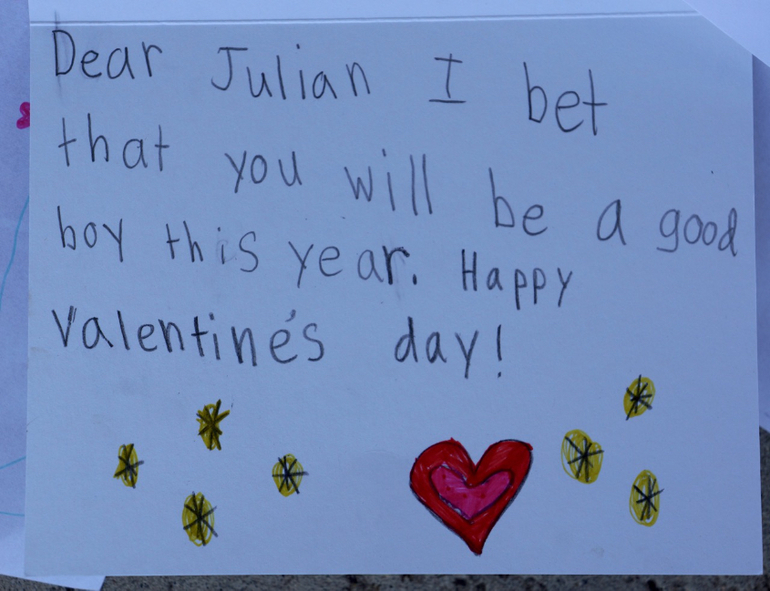 Dear Julian I bet
that you will be a good
boy this year. Happy
Valentine's day!